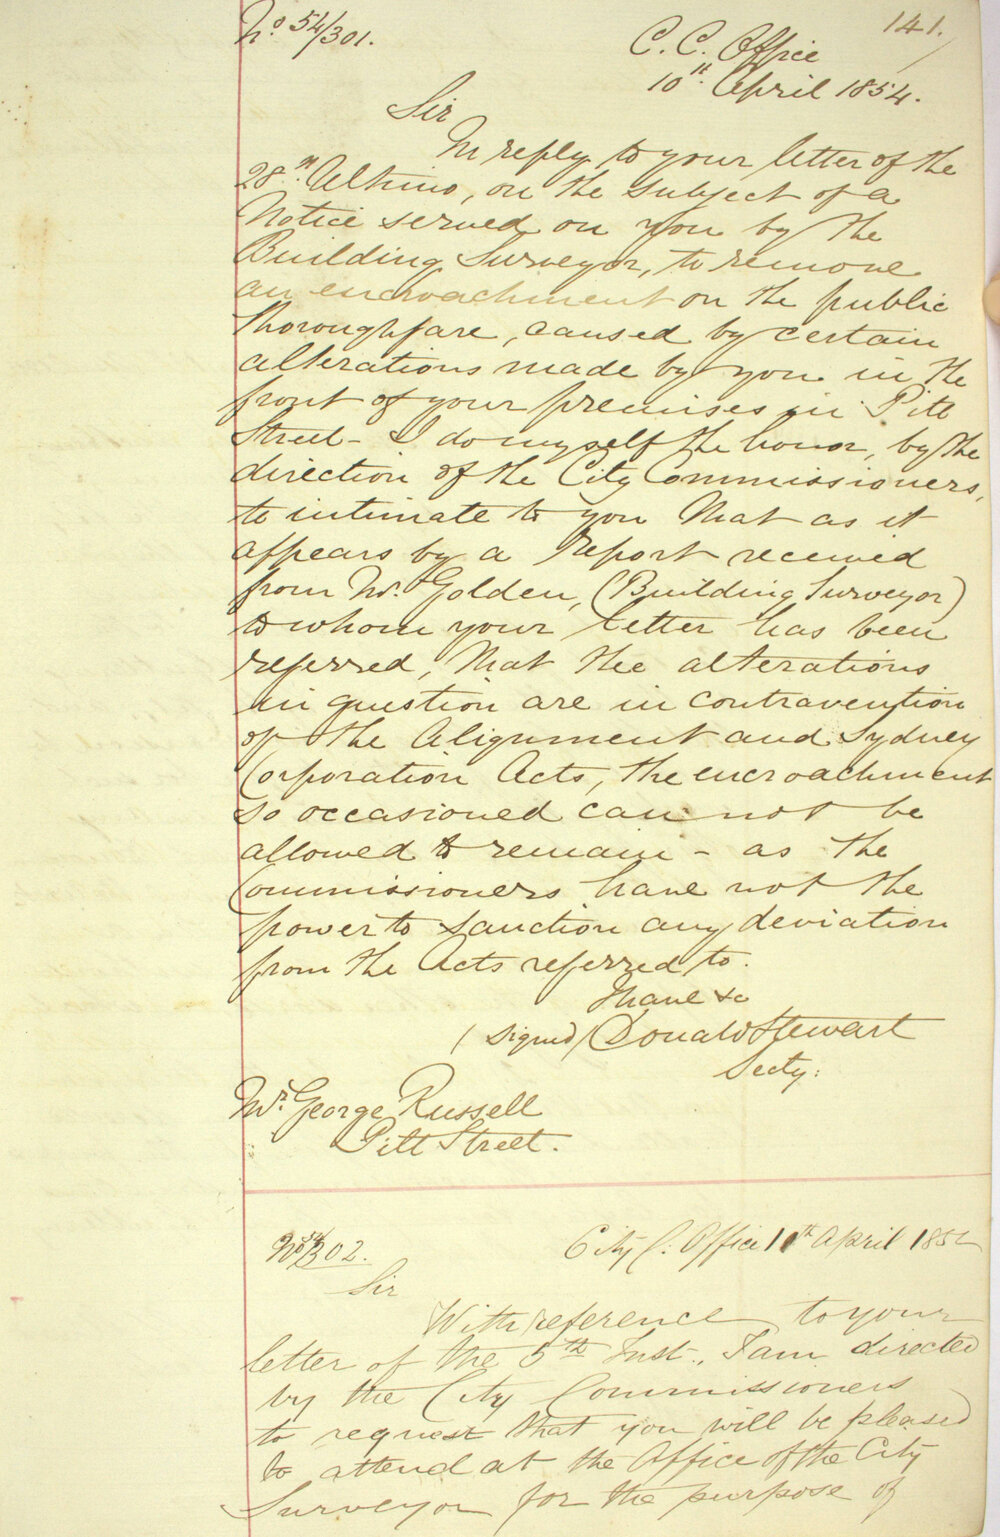 141.
No. 54/301.
C. C. Office
10th April 1854.
Sir
In reply to your letter of the
28th Ultimo, on the subject of a
Notice served on you by the
Building Surveyor, to remove
an encroachment on the public
thoroughfare, caused by certain
alterations made by you in the
front of your premises in Pitt
Street - I do myself the honor, by the
direction of the City Commissioners,
to intimate to you that as it
appears by a report received
from Mr. Golden, (Building Surveyor)
to whom your letter has been
referred, that the alterations
in question are in contravention
of the Alignment and Sydney
Corporation Acts, the encroachment
so occasioned can not be
allowed to remain - as the
Commissioners have not the
power to sanction any deviation
from the Acts referred to.
I have &c
(signed) Donald Stewart
Secty:
Mr. George Russell
Pitt Street.
No 54/302.
City C. Office 11th April 1854
Sir
With reference to your
letter of the 5th Inst., I am directed
by the City Commissioners
to request that you will be pleased
to attend at the Office of the City
Surveyor for the purpose of